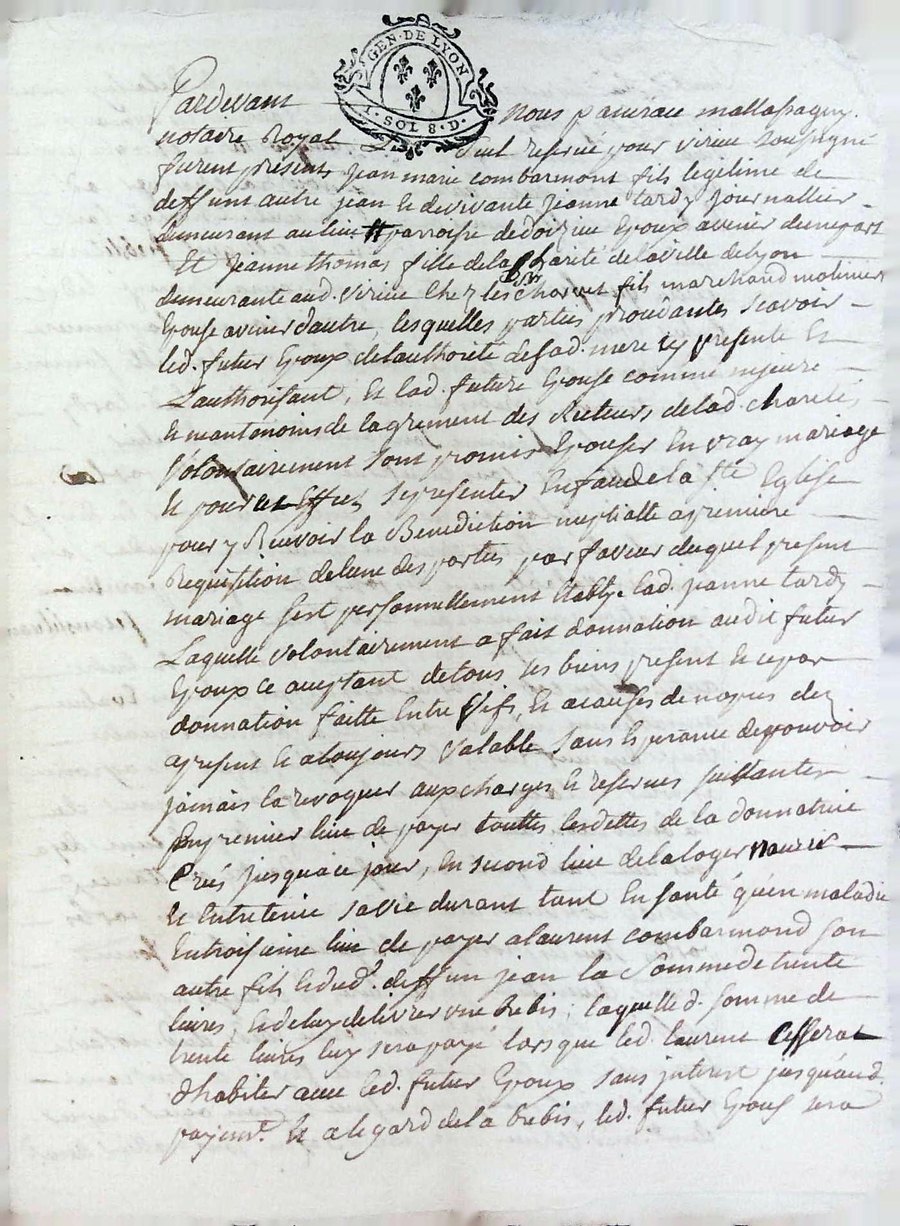 GEN · DE LYON
1 · SOL 8 · D ·
Pardevant Nous
notaire Royal reservé pour virieu soussigné
furent présents Jean marie combarmont fils legitime de
deffunt autre jean et de vivante Jeanne tardy journallier
demeurant au lieu parroisse de Epoux avenir d'une part
Et Jeanne thomas fille de la Charité de la ville de lyon
demeurante aud. virieu chez les fils marchand
Epouse avenir d'autre, lesquelles parties scavoir
led. futur Epoux de l'authorité de sad. mere icy presente et
L'authorisant, et lad. future Epouse comme
et neantmoins de lagrement des Recteurs de lad. charité
Volontairement sont promis Epouser en vray mariage
et pour cet effet se presenter en face de la ste Eglise
pour y Recevoir la Benediction nuptialle a premiere
Requisition de lune des parties par faveur duquel present
mariage sest personnellement Etablye lad. jeanne tardy
Laquelle volontairement a fait donnation audit futur
Epoux ce acceptant de tous ses biens present et ce par
donnation faitte Entre Vifs, et a causes de nopces des
apresent et a toujours valable sans Esperance de pouvoir
jamais la revoquer aux charges et reserves suivantes
En premier lieu de payer touttes les dettes de la donnatrice
Créés jusqua ce jour, en second lieu de la loger nourir
et Entretenir sa vie durant tant En santé qu'en maladie
En troisieme lieu de payer a laurent combarmond son
autre fils et dud. deffun jean la Somme de trente
livres, et de luy delivrer une brebis; laquelle d. somme de
trente livres luy sera payé lorsque led. laurent cessera
d'habiter avec led. futur Epoux sans interest jusqu'aud.
payemt. Et a legard de la brebis, led. futur Epoux sera